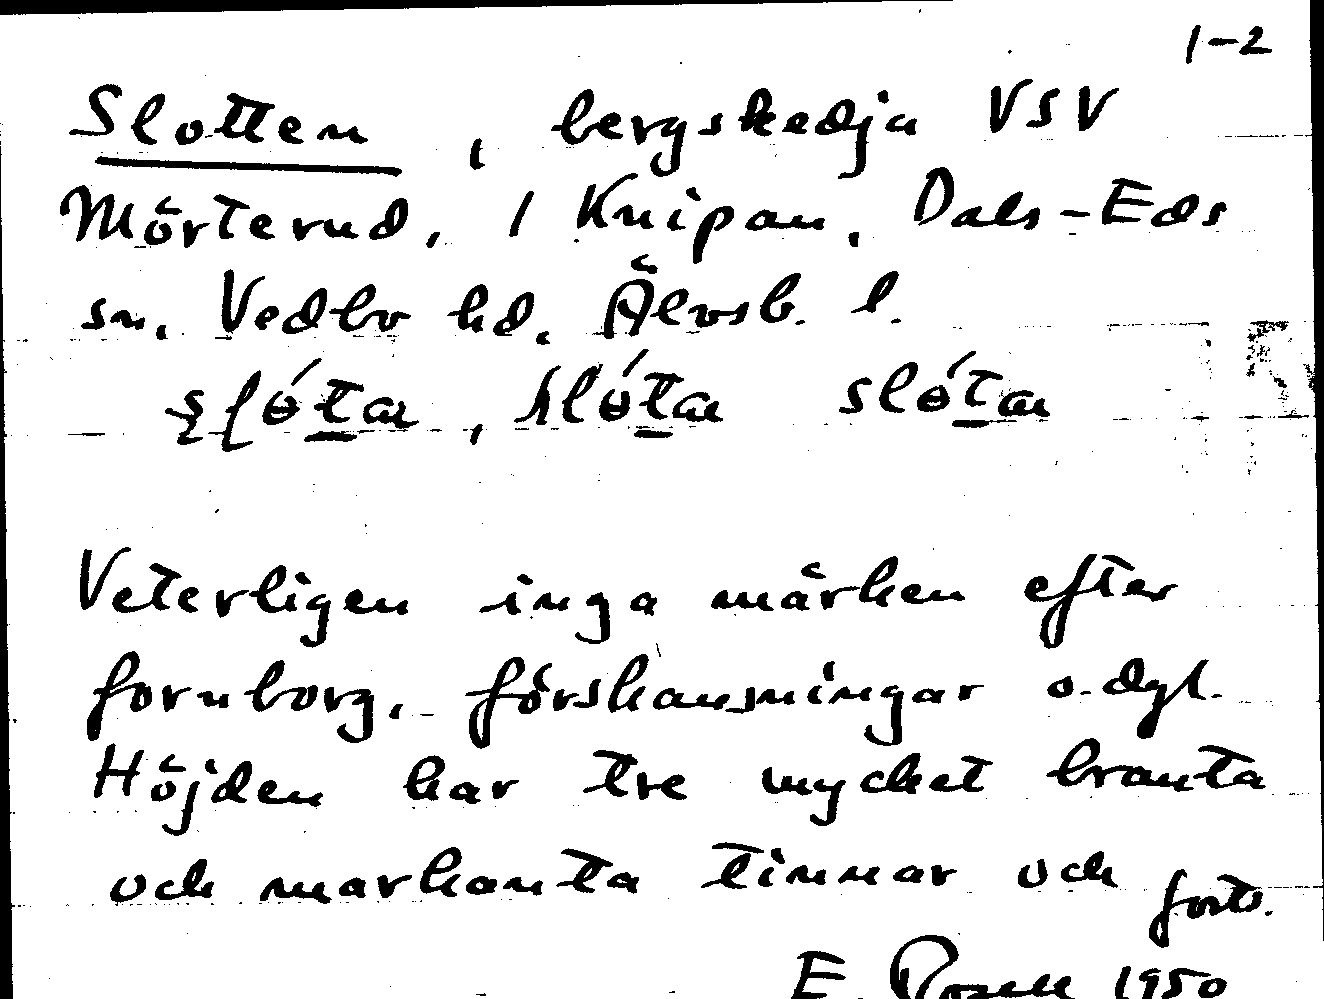 1-2
Slotten, bergskedja VSV
Mörterud, 1 Knipan, Dals-Eds
sn, Vedbo hd. Älvsb. l.
slótan slótan
Veterligen inga märken efter
fornborg, förskansningar o. dyl.
Höjden har tre mycket branta
och markanta tinnar och forts.
E. Rosell 1950